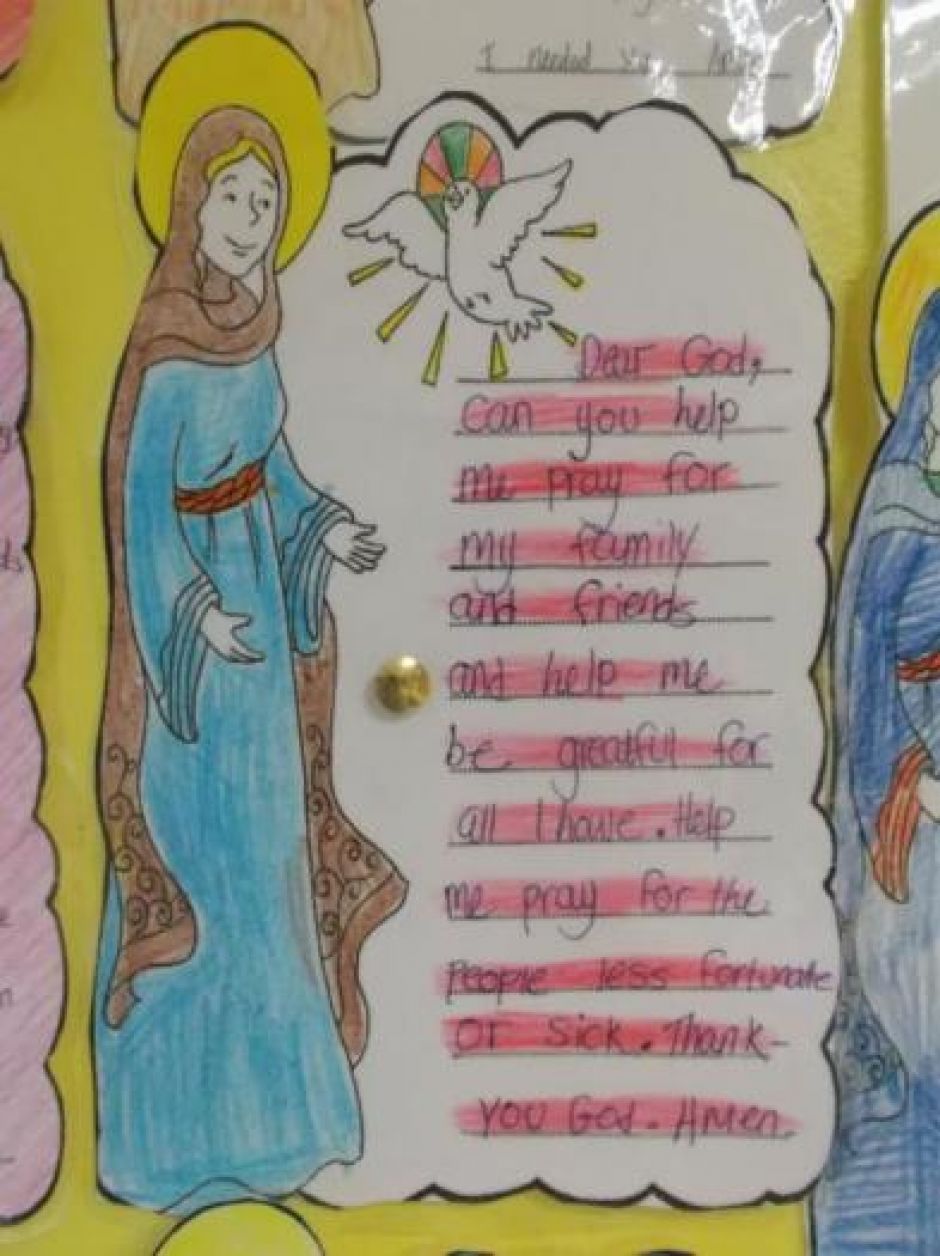 I needed
Dear God,
Can you help
me pray for
my family
and friends
and help me
be greatful for
all I have. Help
me pray for the
people less fortunate
or sick. Thank-
you God. Amen.